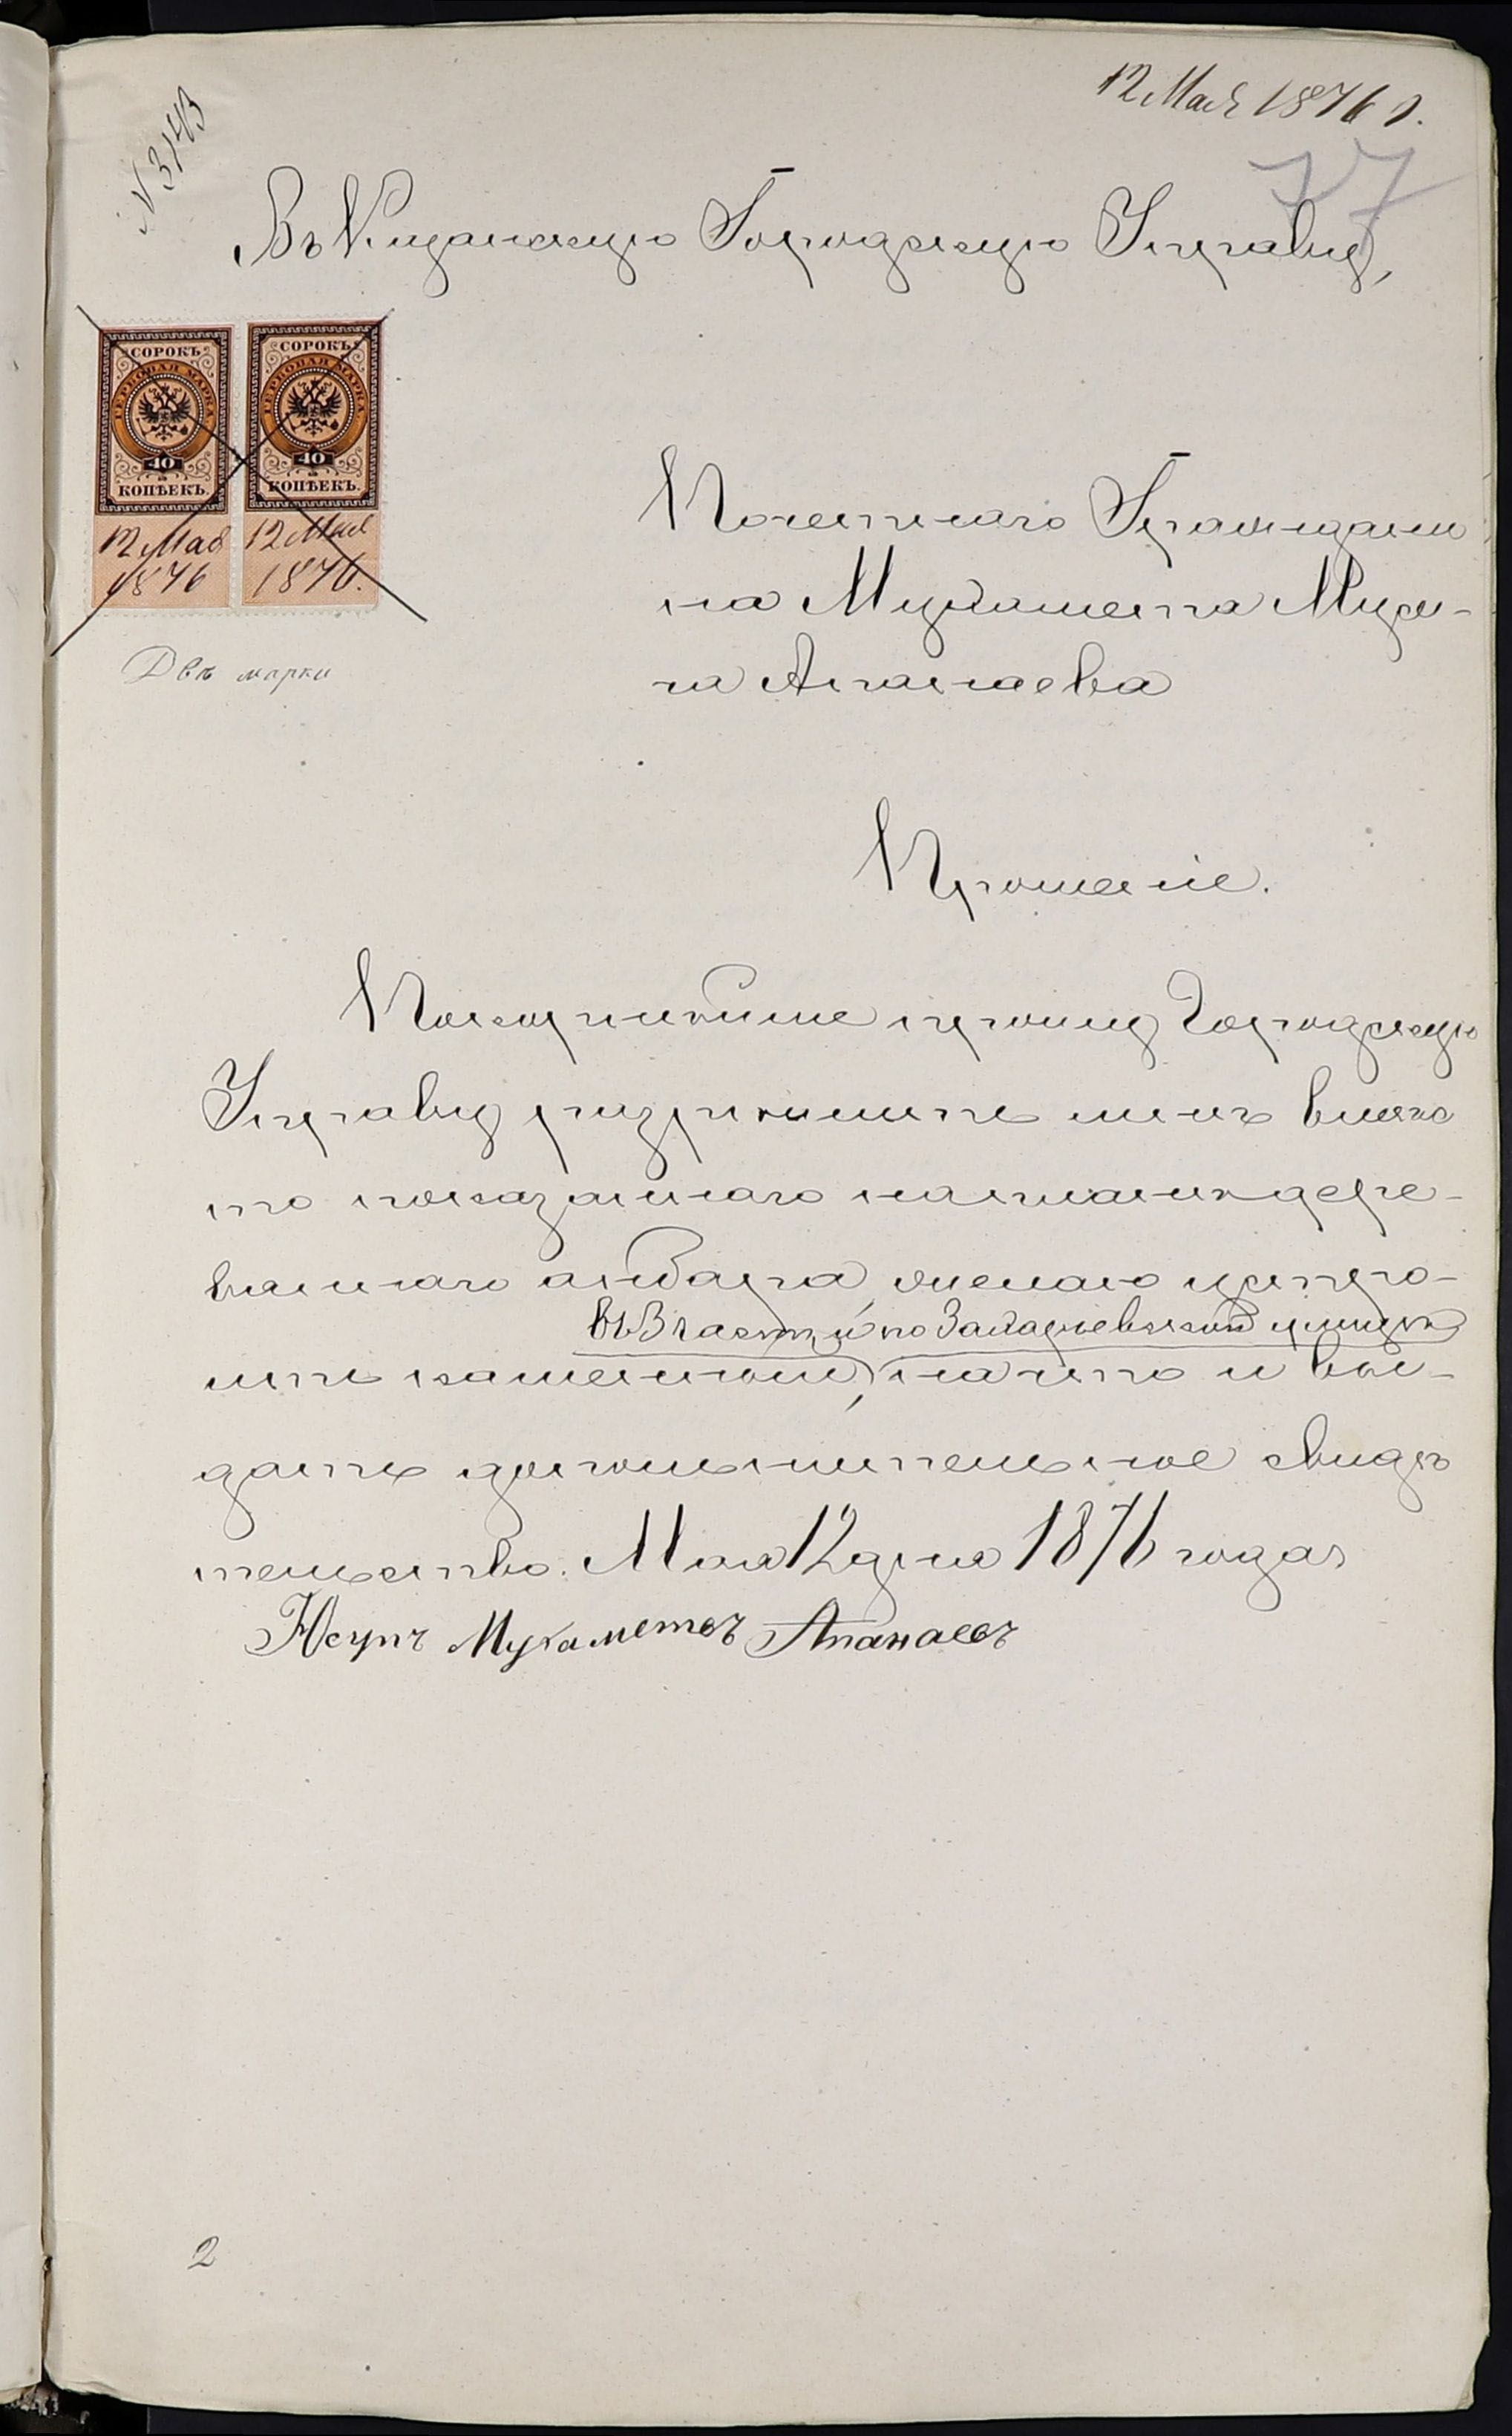 12 Мая 1876 г.
№ 3743
77
Въ Казанскую Городскую Управу,
СОРОКЪ
ГЕРБОВАЯ МАРКА
40
КОПѢЕКЪ.
12 Мая
1876
СОРОКЪ
ГЕРБОВАЯ МАРКА
40
КОПѢЕКЪ.
12 Мая
1876.
Двѣ марки
Почетнаго Граждани
на Мухамета Муси-
на Апанаева
Прошеніе.
Покорнѣйше прошу Городскую
Управу разрѣшить мнѣ вмѣс
то показаннаго на планѣ дере-
вяннаго анбара, желаю устро-
въ 3 части по Захарьевской улицѣ
ить каменной, на что и вы-
дать дополнительное свидѣ
тельство. Мая 12 дня 1876 года
Юсупъ Мухаметовъ Апанаевъ
2